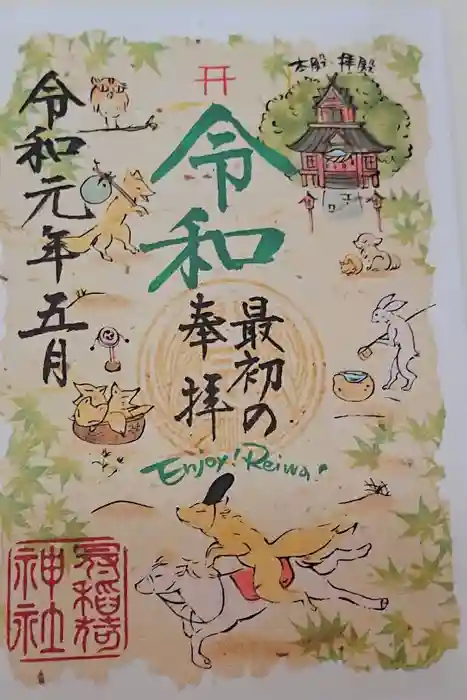 本殿・拝殿
令和
最初の
奉拝
令和元年五月
Enjoy! Reiwa♪
冠稲荷
神社